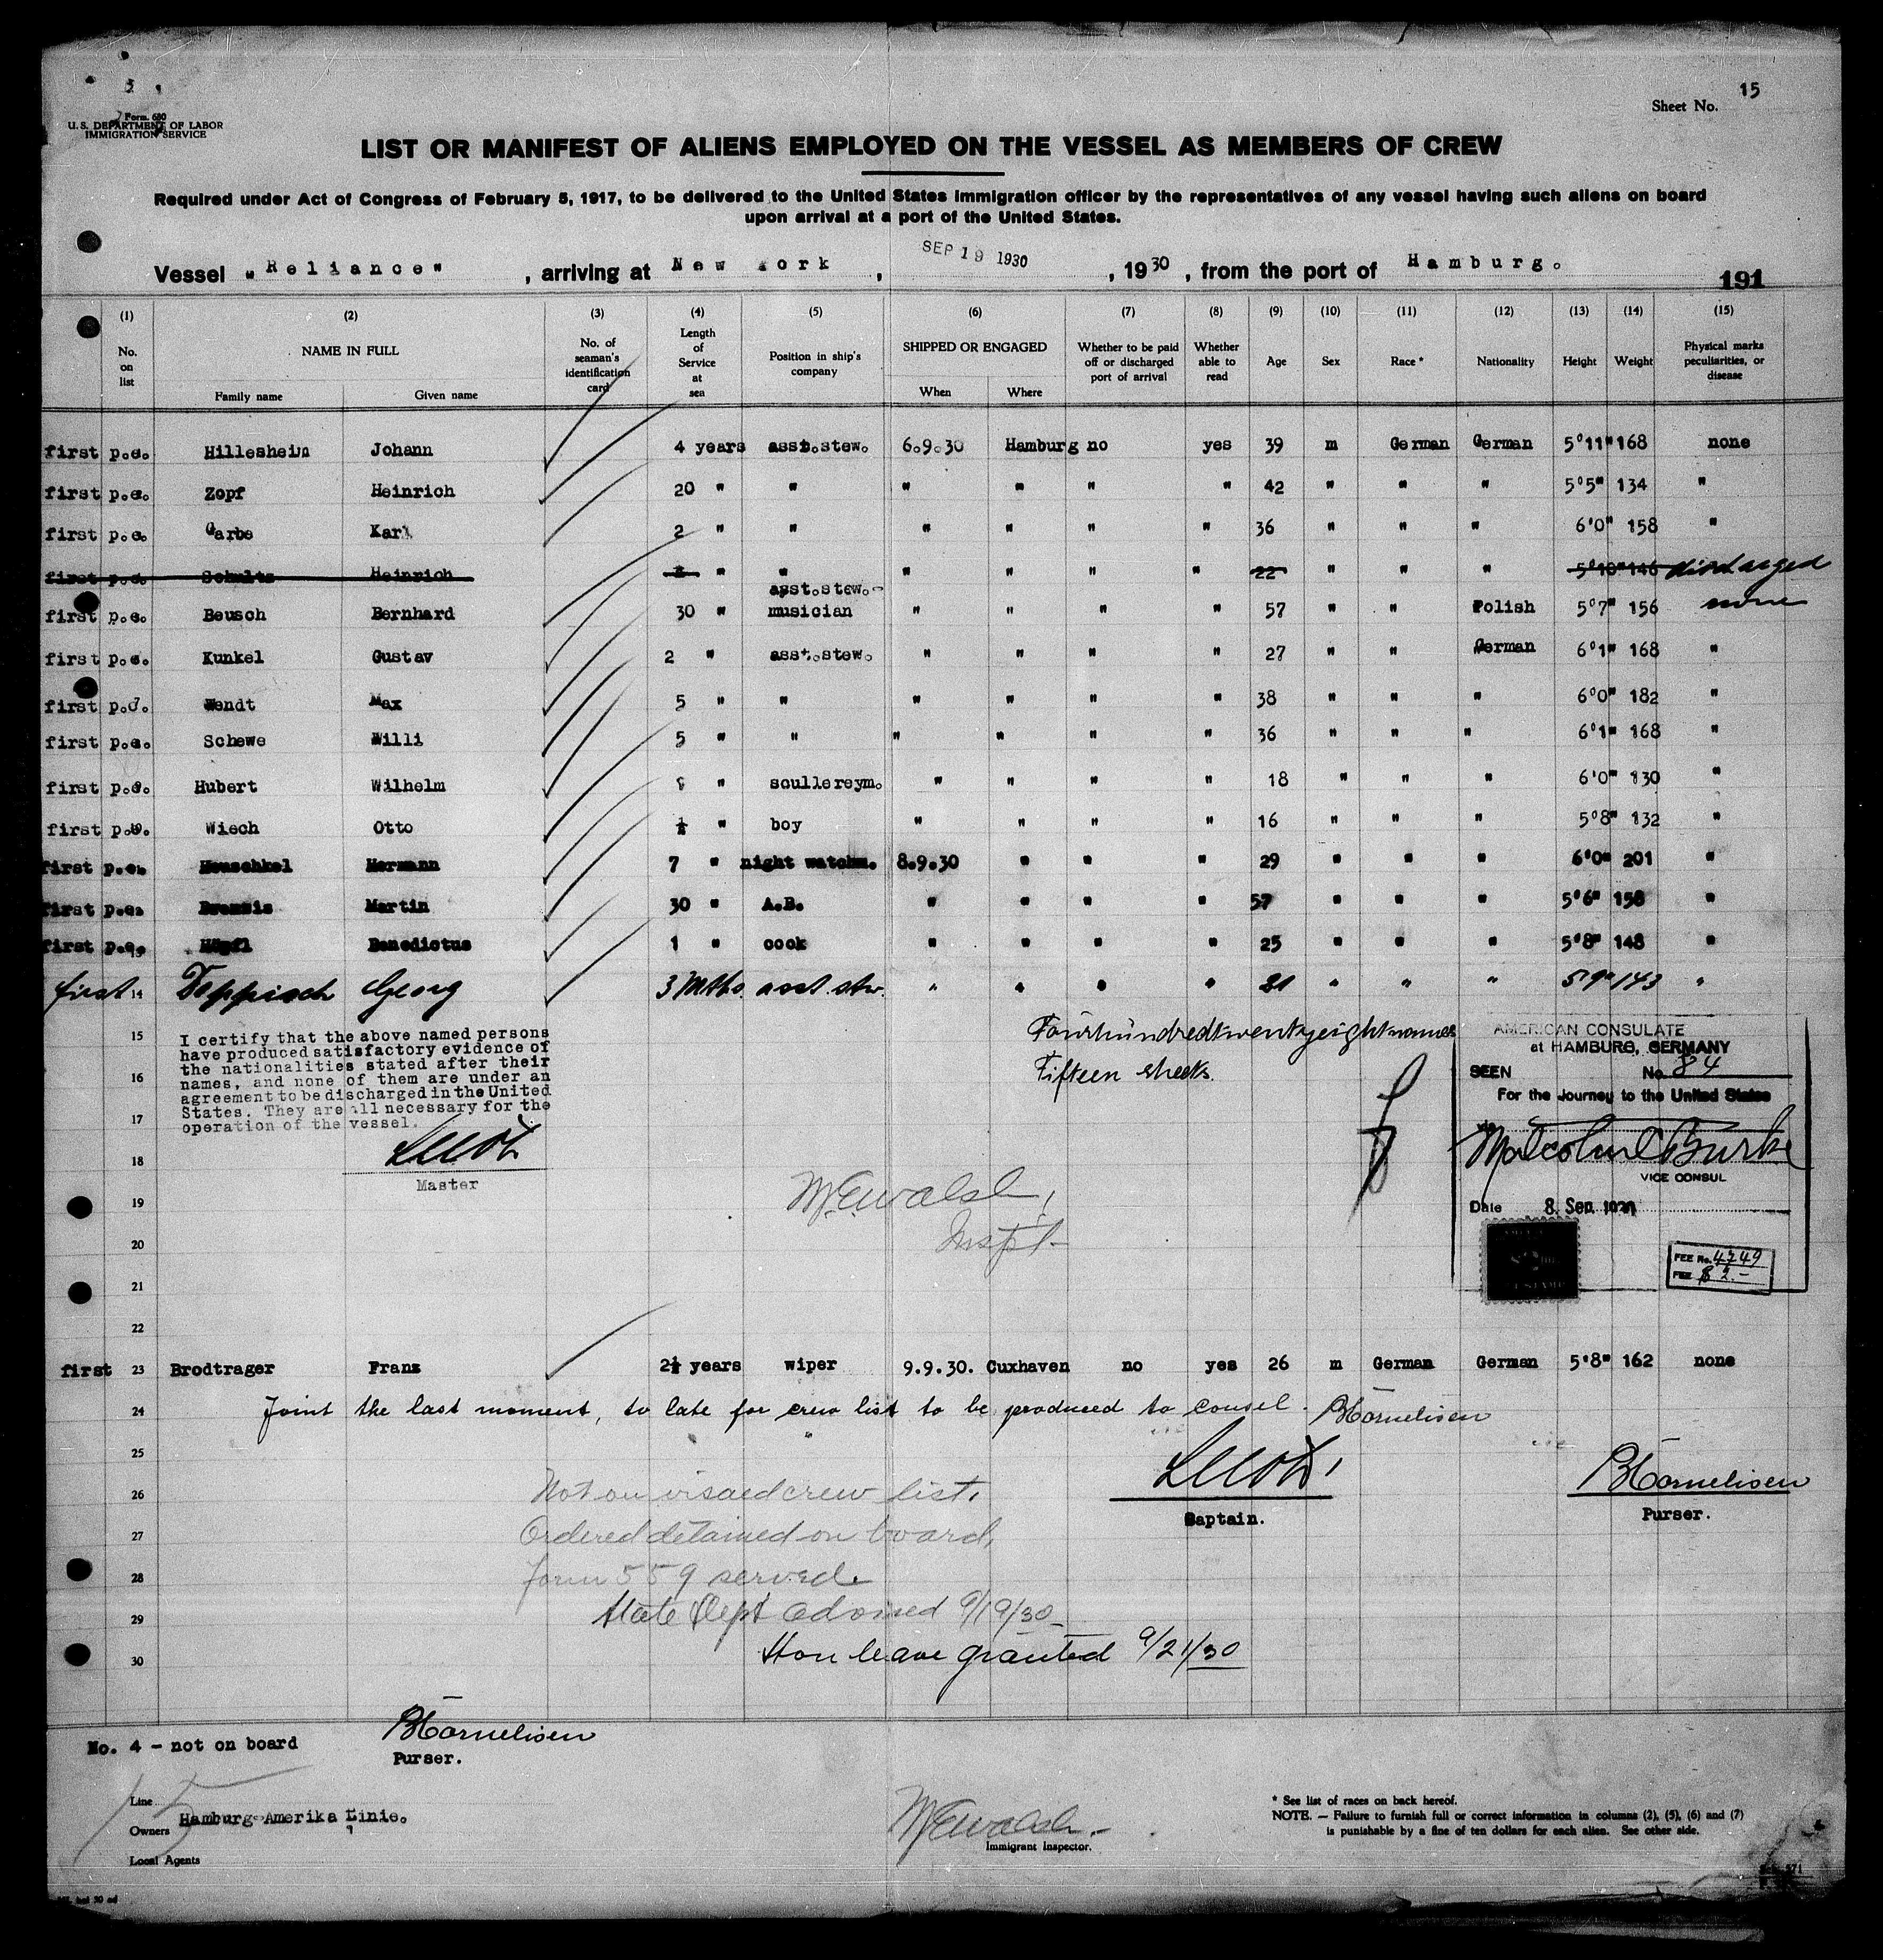 Sheet No. 15
Form. 680
U. S. DEPARTMENT OF LABOR
IMMIGRATION SERVICE
LIST OR MANIFEST OF ALIENS EMPLOYED ON THE VESSEL AS MEMBERS OF CREW
Required under Act of Congress of February 5, 1917, to be delivered to the United States immigration officer by the representatives of any vessel having such aliens on board
upon arrival at a port of the United States.
Vessel "Reliance", arriving at New York, SEP 19 1930, 1930, from the port of Hamburg. 191
(1) (2) (3) (4) (5) (6) (7) (8) (9) (10) (11) (12) (13) (14) (15)
No. on list NAME IN FULL Family name Given name No. of seaman's identification card Length of Service at sea Position in ship's company SHIPPED OR ENGAGED When Where Whether to be paid off or discharged port of arrival Whether able to read Age Sex Race * Nationality Height Weight Physical marks peculiarities, or disease
first p.c. Hillesheim Johann 4 years asst.stew. 6.9.30 Hamburg no yes 39 m German German 5'11" 168 none
first p.c. Zopf Heinrich 20 " " " " " " 42 " " " 5'5" 134 "
first p.c. Garbe Karl 2 " " " " " " 36 " " " 6'0" 158 "
first p.c. Schultz Heinrich " " " " " " 22 " " " 5'10" 146 discharged
first p.c. Beusch Bernhard 30 " asst.stew.- musician " " " " 57 " " Polish 5'7" 156 none
first p.c. Kunkel Gustav 2 " asst.stew. " " " " 27 " " German 6'1" 168 "
first p.c. Wendt Max 5 " " " " " " 38 " " " 6'0" 182 "
first p.c. Schewe Willi 5 " " " " " " 36 " " " 6'1" 168 "
first p.c. Hubert Wilhelm " scullereym. " " " " 18 " " " 6'0" 130 "
first p.c. Wiech Otto ½ " boy " " " " 16 " " " 5'8" 132 "
first p.c. Heuschkel Hermann 7 " night watchm. 8.9.30 " " " 29 " " " 6'0" 201 "
first p.c. Martin 30 " A.B. " " " " 57 " " " 5'6" 158 "
first p.c. Benedictus 1 " cook " " " " 25 " " " 5'8" 148 "
first 14 Teppisch Georg 3 Mths. asst. stw. " " " " 21 " " " 5'9" 143 "
15 I certify that the above named persons
have produced satisfactory evidence of
the nationalities stated after their
16 names, and none of them are under an
agreement to be discharged in the United
States. They are all necessary for the
17 operation of the vessel.
18
Master
Fourhundredtwentyeight names
Fifteen sheets.
AMERICAN CONSULATE
at HAMBURG, GERMANY
SEEN No. 84
For the Journey to the United States
Malcolm C Burke
VICE CONSUL
Date 8. Sep. 1930
FEE No. 4749
FEE $ 2.-
19 M.E. Walsh,
20 Inspt.
21
22
first 23 Brodtrager Franz 2½ years wiper 9.9.30. Cuxhaven no yes 26 m German German 5'8" 162 none
24 Joint the last moment, to late for crew list to be produced to consel. BCornelisen
25
26 Not on visaed crew list.
27 Ordered detained on board,
28 Form 559 served.
29 State Dept advised 9/19/30
30 Hon leave granted 9/21/30
Captain.
BCornelisen
Purser.
No. 4 - not on board
BCornelisen
Purser.
15
Line
Owners Hamburg-Amerika Linie.
Local Agents
M.E. Walsh.
Immigrant Inspector.
* See list of races on back hereof.
NOTE. — Failure to furnish full or correct information in columns (2), (5), (6) and (7)
is punishable by a fine of ten dollars for each alien. See other side.